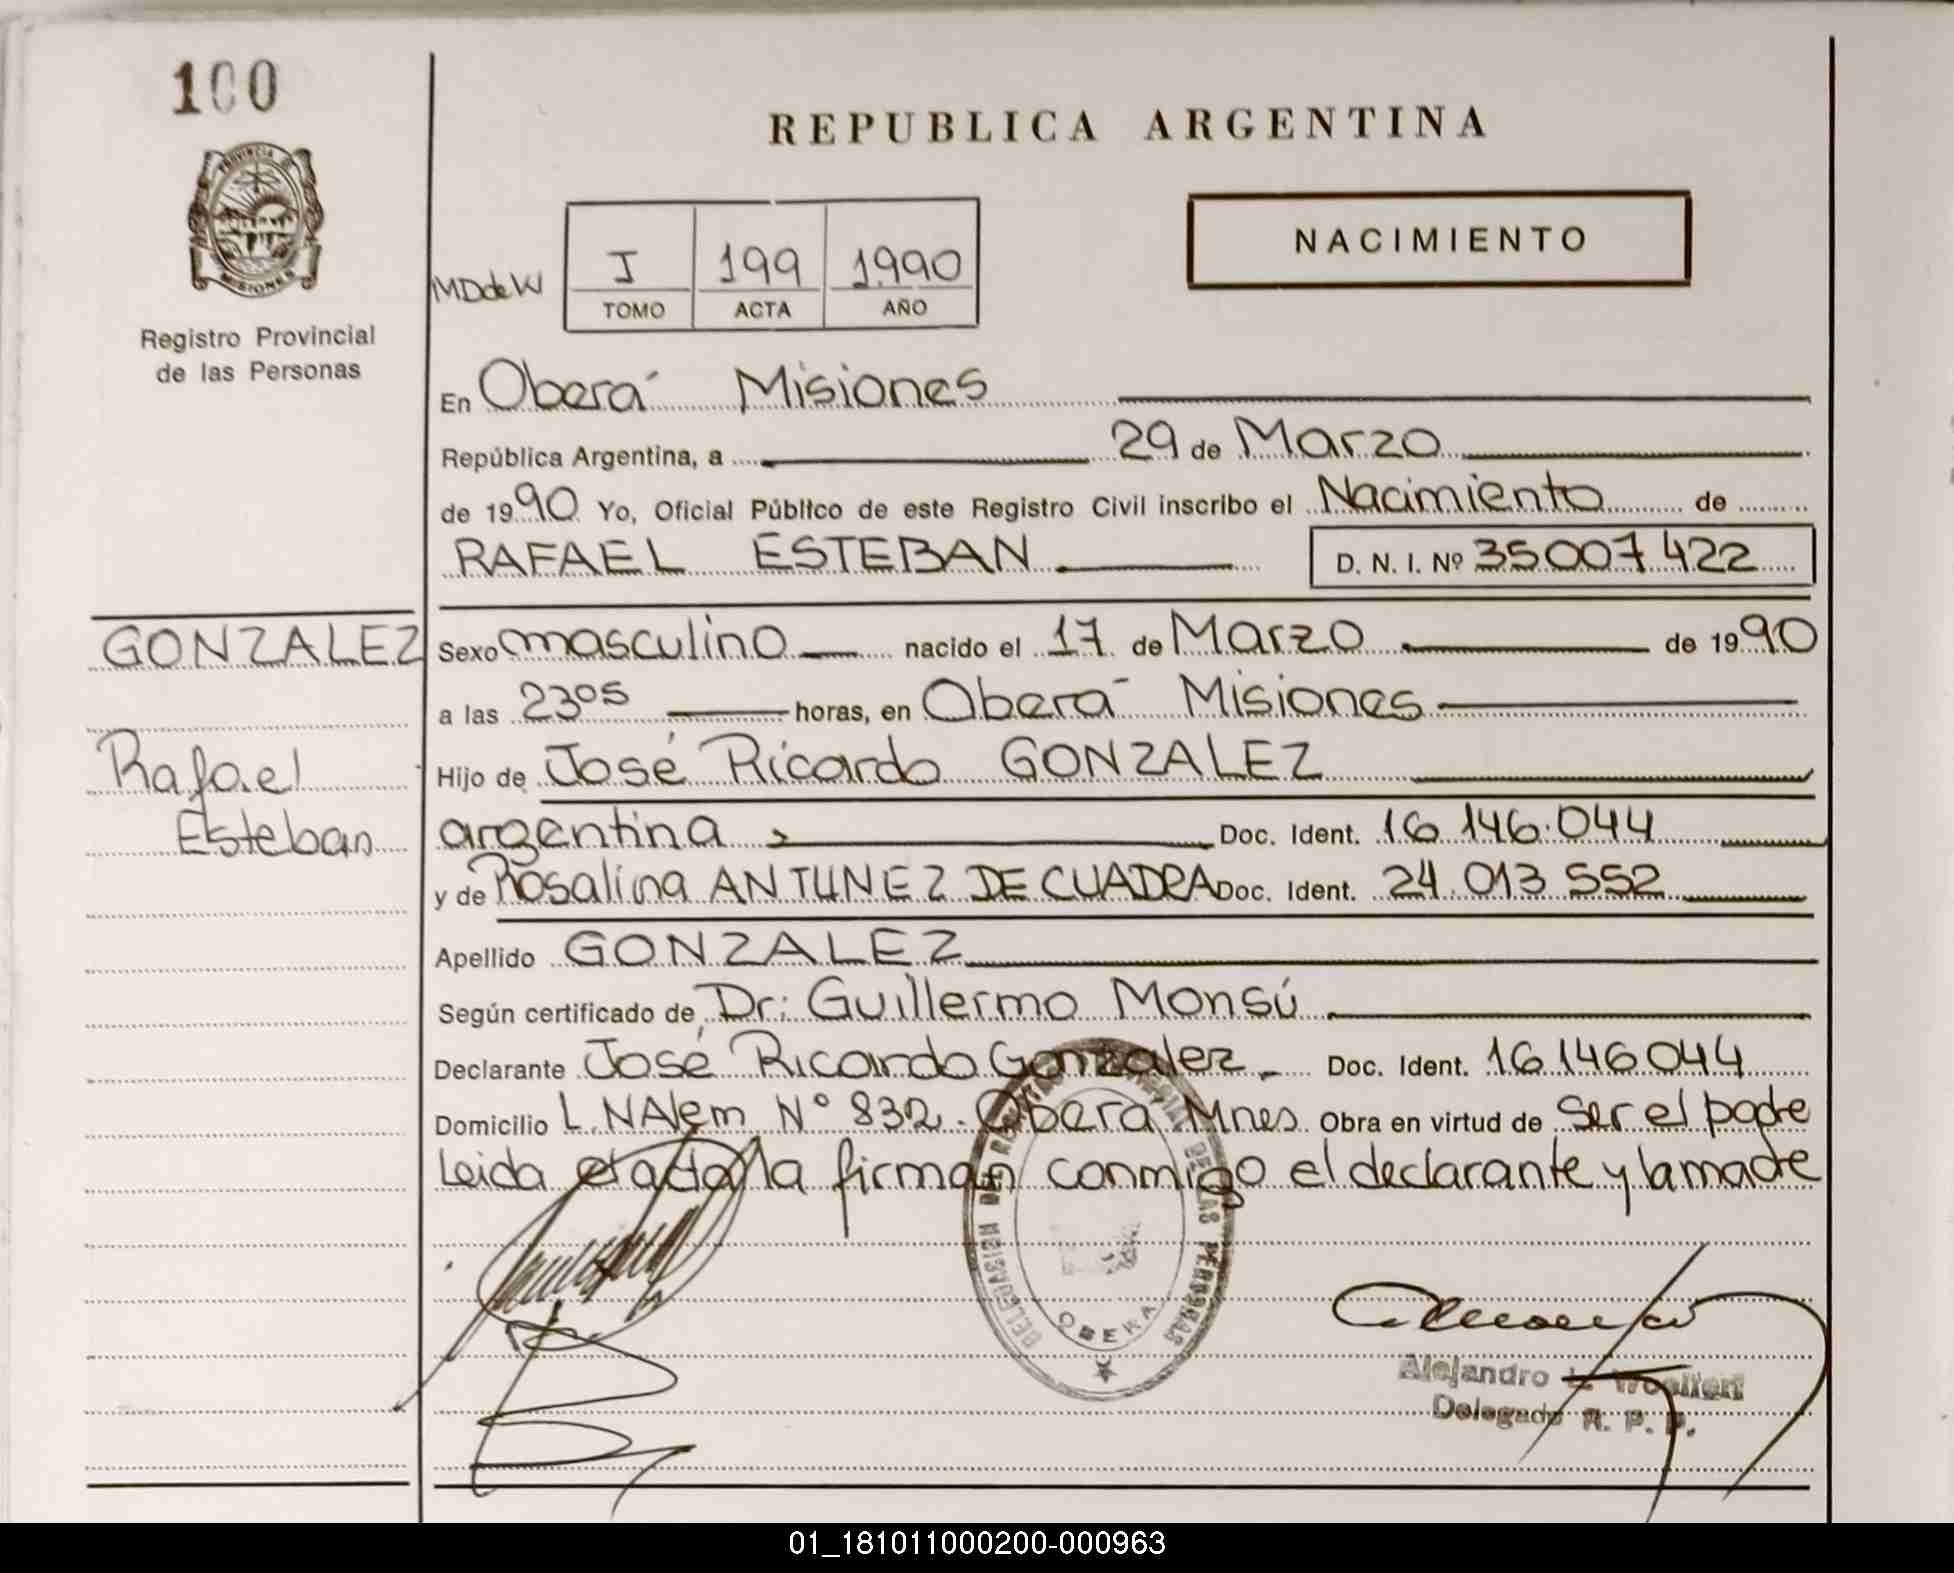 100
REPUBLICA ARGENTINA
PROVINCIA DE
MISIONES
NACIMIENTO
MDdeW
I 199 1.990
TOMO ACTA AÑO
Registro Provincial
de las Personas
En Oberá Misiones
República Argentina, a 29 de Marzo
de 1990 Yo, Oficial Público de este Registro Civil inscribo el Nacimiento de
RAFAEL ESTEBAN D. N. I. Nº 35007.422
GONZALEZ
Rafael
Esteban
Sexo masculino nacido el 17 de Marzo de 1990
a las 23⁰⁵ horas, en Oberá Misiones
Hijo de José Ricardo GONZALEZ
argentina Doc. Ident. 16.146.044
y de Rosalina ANTUNEZ DE CUADRA Doc. Ident. 24.013.552
Apellido GONZALEZ
Según certificado de Dr: Guillermo Monsú
Declarante José Ricardo Gonzalez. Doc. Ident. 16.146.044
Domicilio L.NAlem N° 832. Obera Mnes Obra en virtud de ser el padre
Leida el acta la firman conmigo el declarante y la madre
DELEGACION DEL REGISTRO PROVINCIAL DE LAS PERSONAS
OBERA
Alejandro
Delegado R. P. P.
01_181011000200-000963